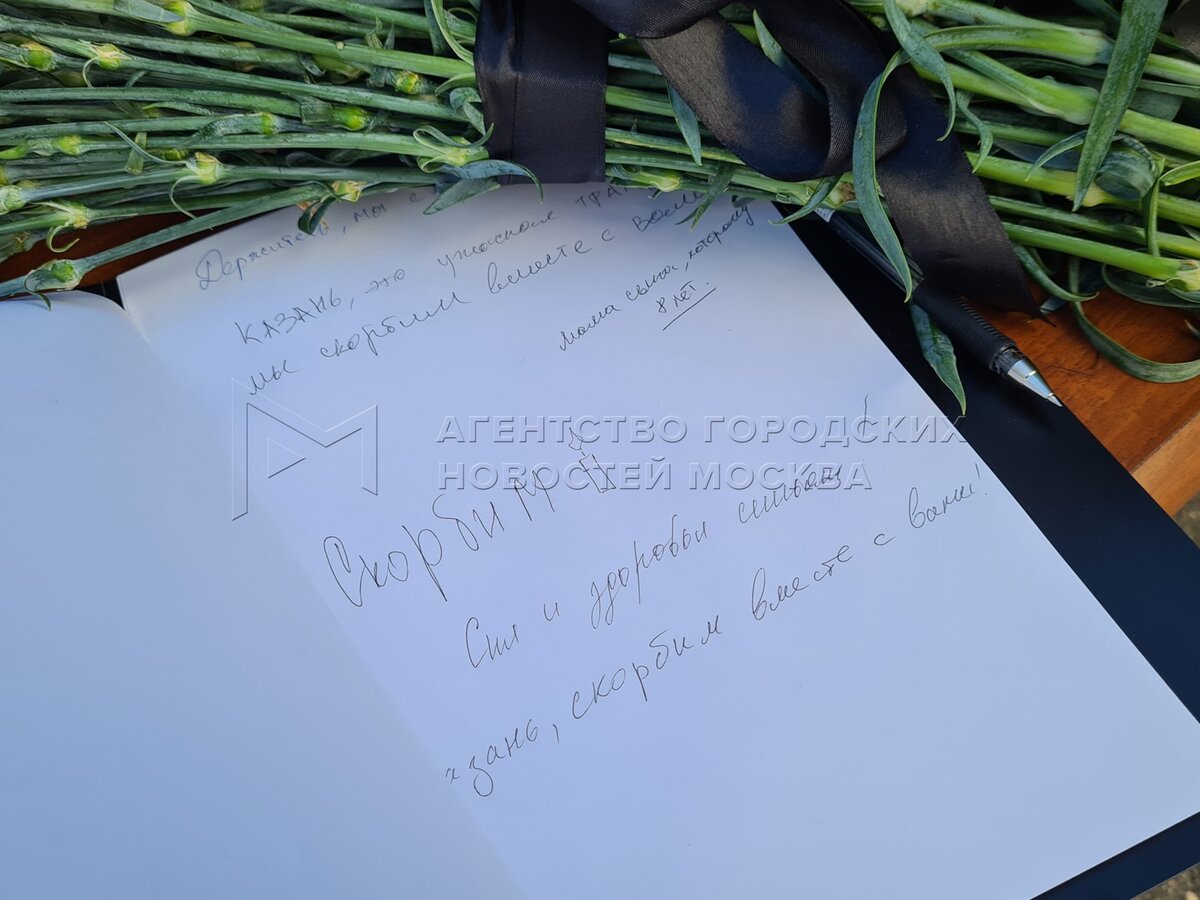 Держитесь, мы с
КАЗАНЬ, это ужасная тра
мы скорбим вместе с Вами
мама сына, которому
8 лет.
АГЕНТСТВО ГОРОДСКИХ
НОВОСТЕЙ МОСКВА
Скорбим
Сил и здоровья
азань, скорбим вместе с вами!